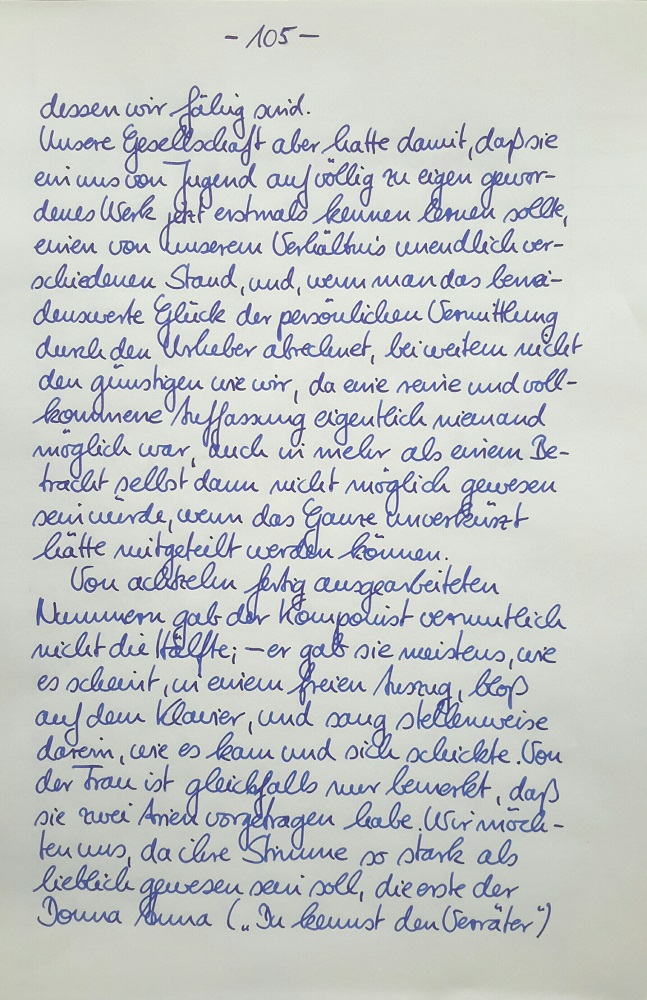 - 105 -
dessen wir fähig sind.
Unsere Gesellschaft aber hatte damit, daß sie
ein uns von Jugend auf völlig zu eigen gewor-
denes Werk jetzt erstmals kennen lernen sollte,
einen von unserem Verhältnis unendlich ver-
schiedenen Stand, und, wenn man das benei-
denswerte Glück der persönlichen Vermittlung
durch den Urheber abrechnet, bei weitem nicht
den günstigen wie wir, da eine reine und voll-
kommene Auffassung eigentlich niemand
möglich war, auch in mehr als einem Be-
tracht selbst dann nicht möglich gewesen
sein würde, wenn das Ganze unverkürzt
hätte mitgeteilt werden können.
Von achtzehn fertig ausgearbeiteten
Nummern gab der Komponist vermutlich
nicht die Hälfte; – er gab sie meistens, wie
es scheint, in einem freien Auszug, bloß
auf dem Klavier, und sang stellenweise
darein, wie es kam und sich schickte. Von
der Frau ist gleichfalls nur bemerkt, daß
sie zwei Arien vorgetragen habe. Wir möch-
ten uns, da ihre Stimme so stark als
lieblich gewesen sein soll, die erste der
Donna Anna („Du kennst den Verräter“)